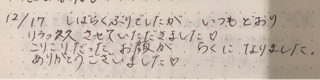 12/17 しばらくぶりでしたが いつもどおり
リラックス させていただきました♡
こりこりだった お腹が らくに なりました。
ありがとうございました♡